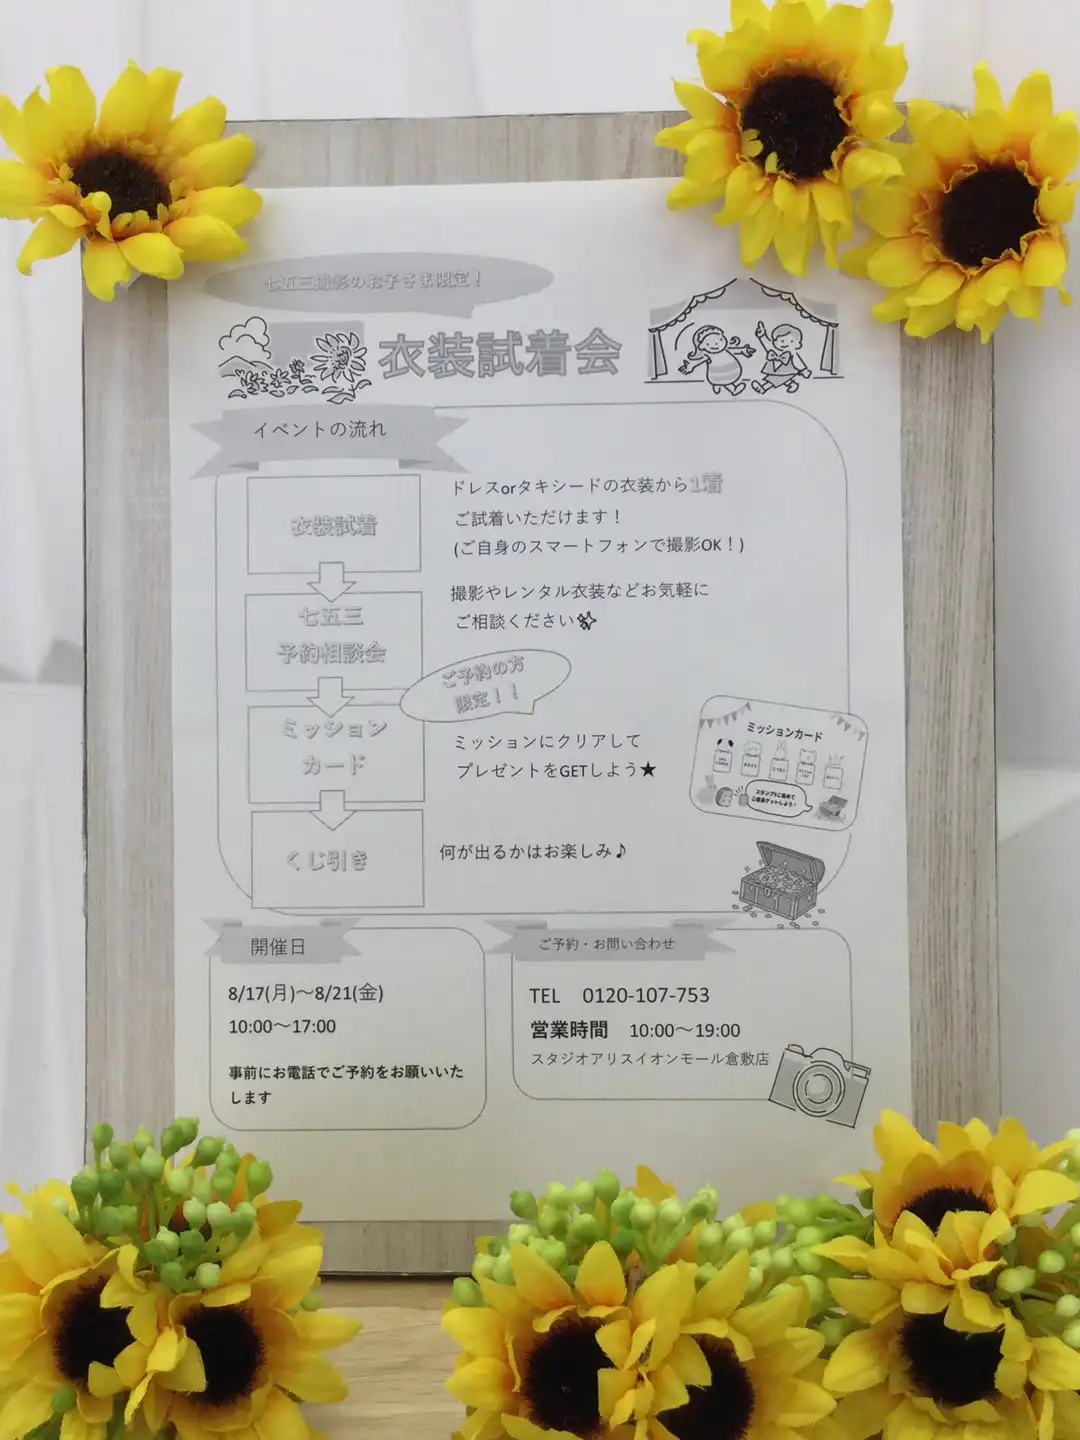 七五三撮影のお子さま限定！
衣装試着会
イベントの流れ
衣装試着
ドレスorタキシードの衣装から1着
ご試着いただけます！
(ご自身のスマートフォンで撮影OK！)
七五三
予約相談会
撮影やレンタル衣装などお気軽に
ご相談ください
ご予約の方
限定！！
ミッション
カード
ミッションにクリアして
プレゼントをGETしよう★
ミッションカード
くじ引き
何が出るかはお楽しみ♪
開催日
8/17(月)～8/21(金)
10:00～17:00
事前にお電話でご予約をお願いいた
します
ご予約・お問い合わせ
TEL 0120-107-753
営業時間 10:00～19:00
スタジオアリスイオンモール倉敷店